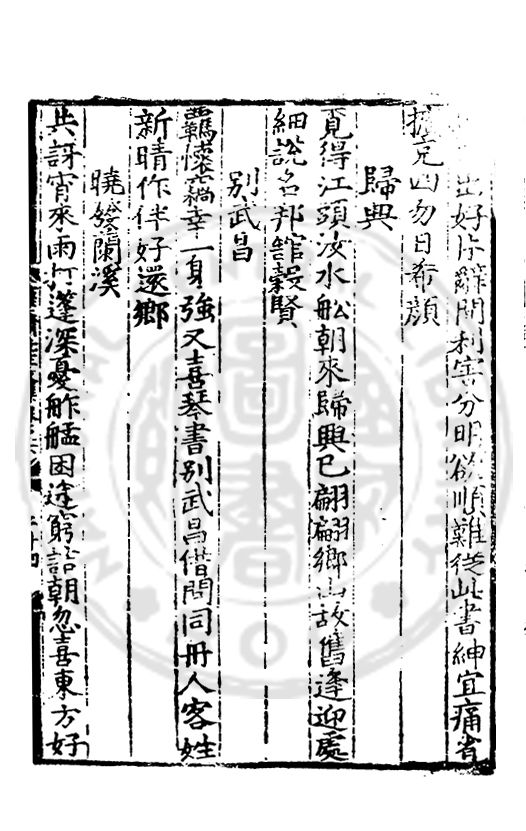 出好片辭間利害分明欲順難從此書紳宜痛省
擴充四勿日希顏
歸興
覓得江頭汝水船朝來歸興已翩翩鄉山故舊逢迎處
細說名邦館穀賢
别武昌
羈懷竊幸一身強又喜琴書别武昌借問同舟人客姓
新晴作伴好還鄉
曉發蘭溪
共訝宵來雨打篷深憂舴艋困途窮詰朝忽喜東方好